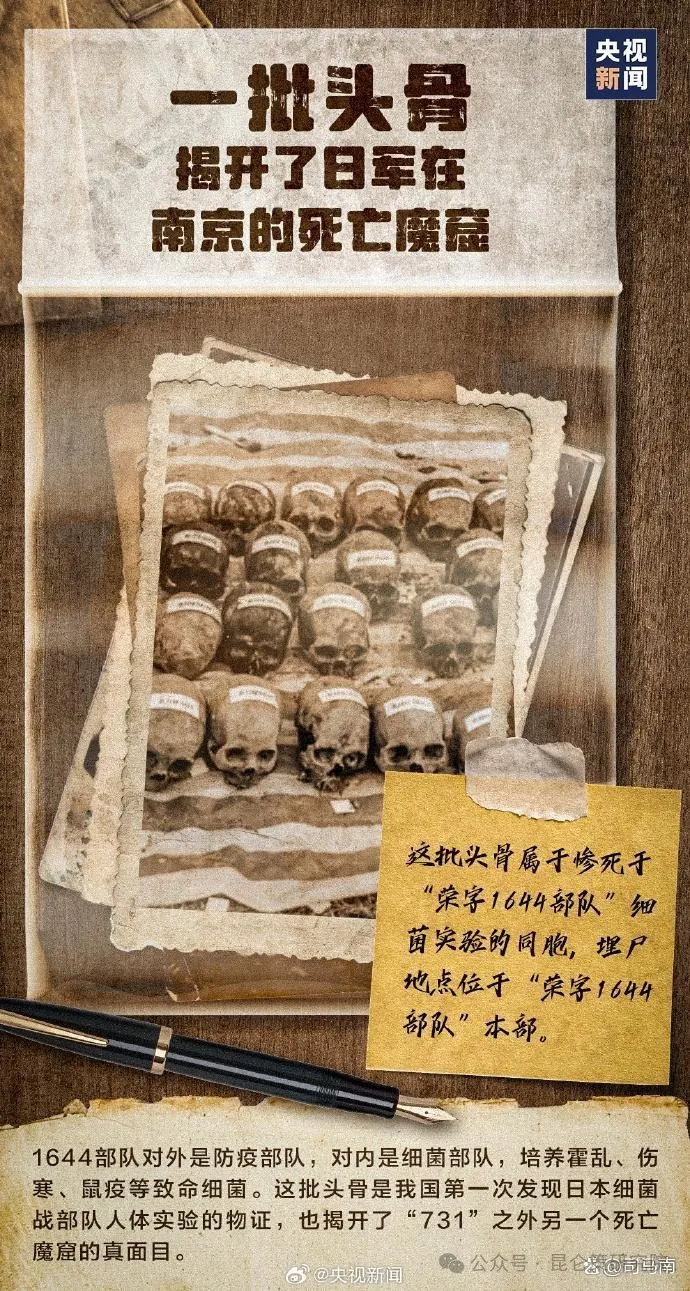 央视
新闻
一批头骨
揭开了日军在
南京的死亡魔窟
这批头骨属于惨死于
“荣字1644部队”细
菌实验的同胞，埋尸
地点位于“荣字1644
部队”本部。
1644部队对外是防疫部队，对内是细菌部队，培养霍乱、伤
寒、鼠疫等致命细菌。这批头骨是我国第一次发现日本细菌
战部队人体实验的物证，也揭开了“731”之外另一个死亡
魔窟的真面目。
公众号·昆仑策研究院
@司马南
@央视新闻